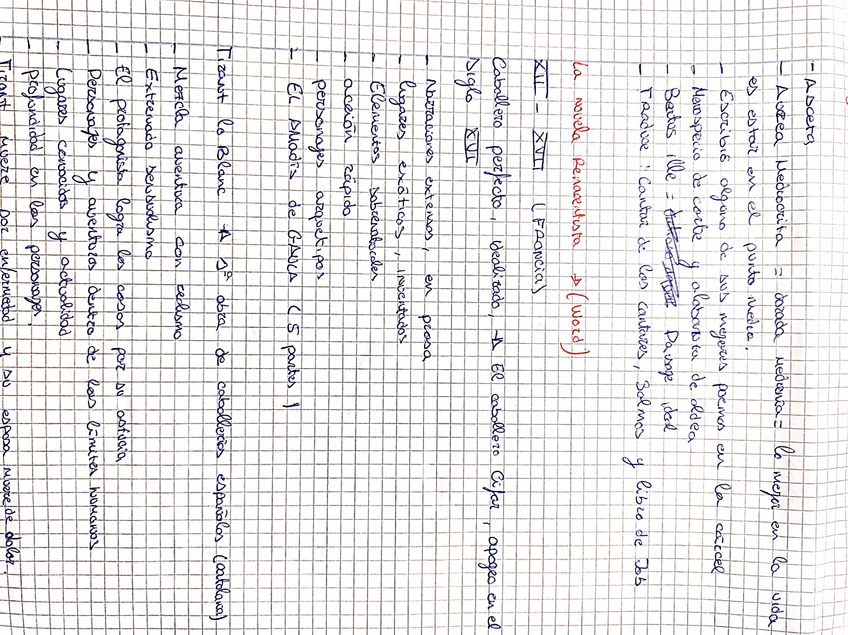 - Asceta
- Aurea Mediocrita = dorada medianía = lo mejor en la vida
es estar en el punto medio.
- Escribió alguno de sus mejores poemas en la cárcel
- Menosprecio de corte y alabanza de aldea
- Beatus ille = Paisaje ideal
- Traduce: Cantar de los cantares, Salmos y libro de Job
La novela Renacentista → (Word)
XII - XVII (FRANCIA)
Caballero perfecto, idealizado, → El caballero Cifar, apogeo en el
Siglo XVI
- Narraciones extensas, en prosa
- lugares exóticos, inventados
- Elementos sobrenaturales
- acción rápida
- personajes arquetipos
- EL AMADÍS de GAULA (5 partes)
Tirant lo Blanc → 1º obra de caballerías españolas (catalana)
- Mezcla aventura con realismo
- Extremada sensualismo
- El protagonista logra las cosas por su astucia
- Personajes y aventuras dentro de los límites humanos
- Lugares conocidos y actualidad
- profundidad en los personajes.
- Tirant muere por enfermedad y su esposa muere de dolor.